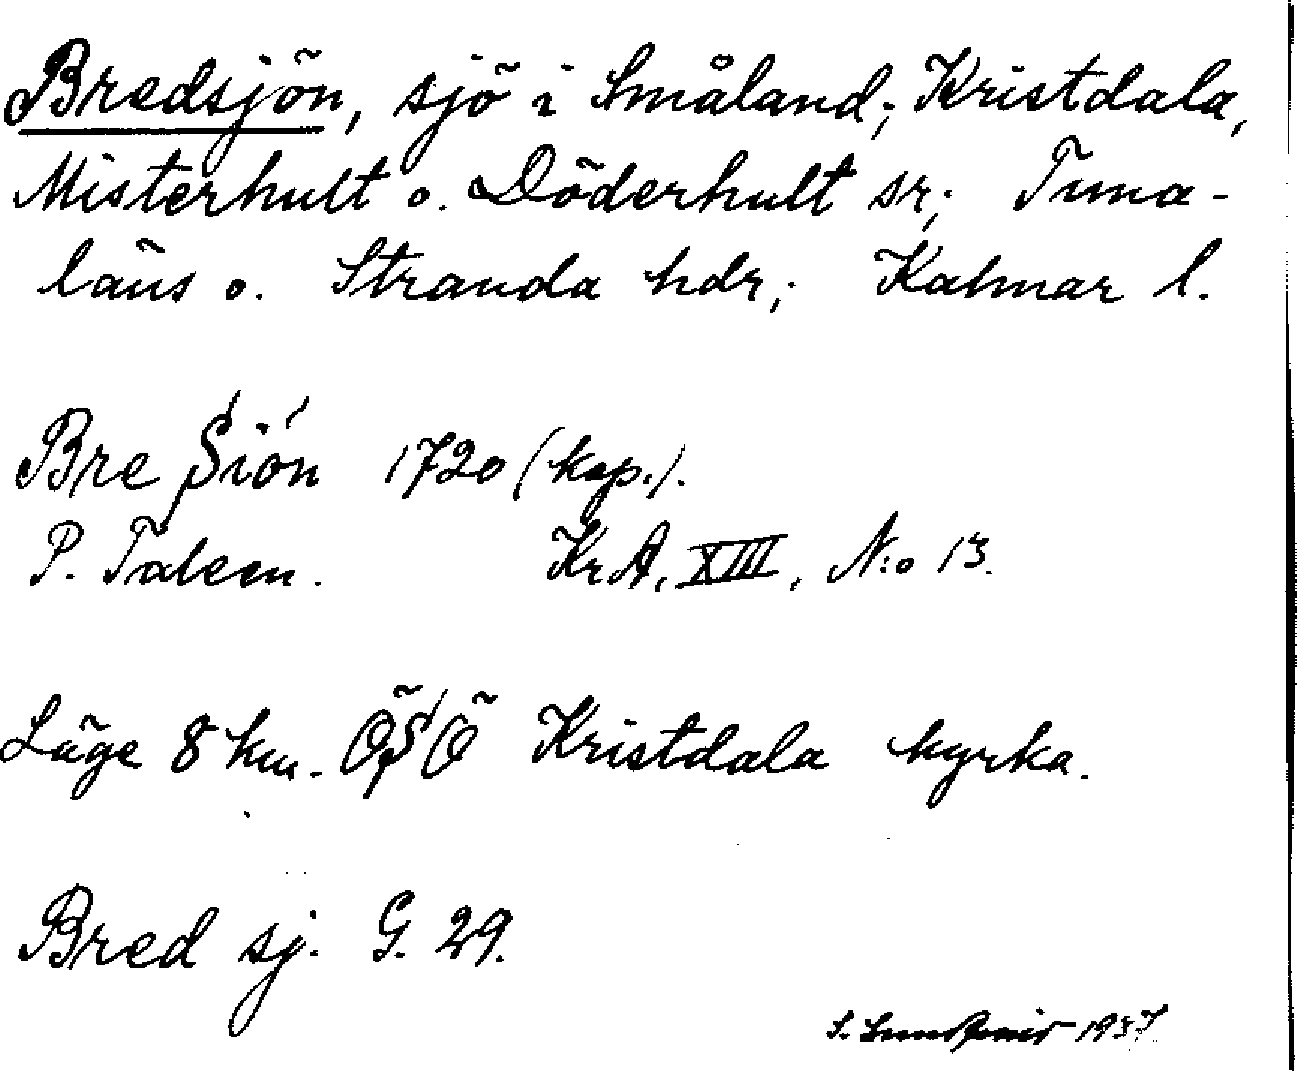 Bredsjön, sjö i Småland; Kristdala,
Misterhult o. Döderhult sr; Tuna-
läns o. Stranda hdr; Kalmar l.
Bre Siön 1720 (kop.).
P. Taleen. KrA, XIII, N:o 13.
Läge 8 km. ÖSÖ Kristdala kyrka.
Bred sj. G. 29.
S. 1937